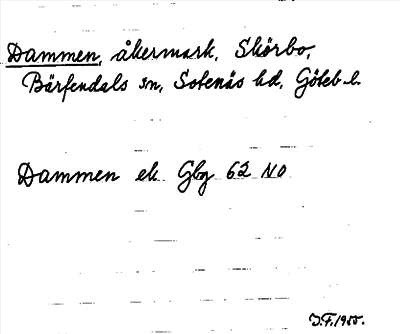 Dammen, åkermark, Skörbo,
Bärfendals sn, Sotenäs hd, Göteb. l.
Dammen ek Gbg 62 NO
J.F. 1955.